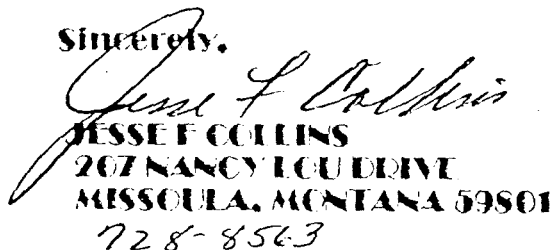 Sincerely,
Jesse F Collins
JESSE F COLLINS
207 NANCY LOU DRIVE
MISSOULA, MONTANA 59801
728-8563